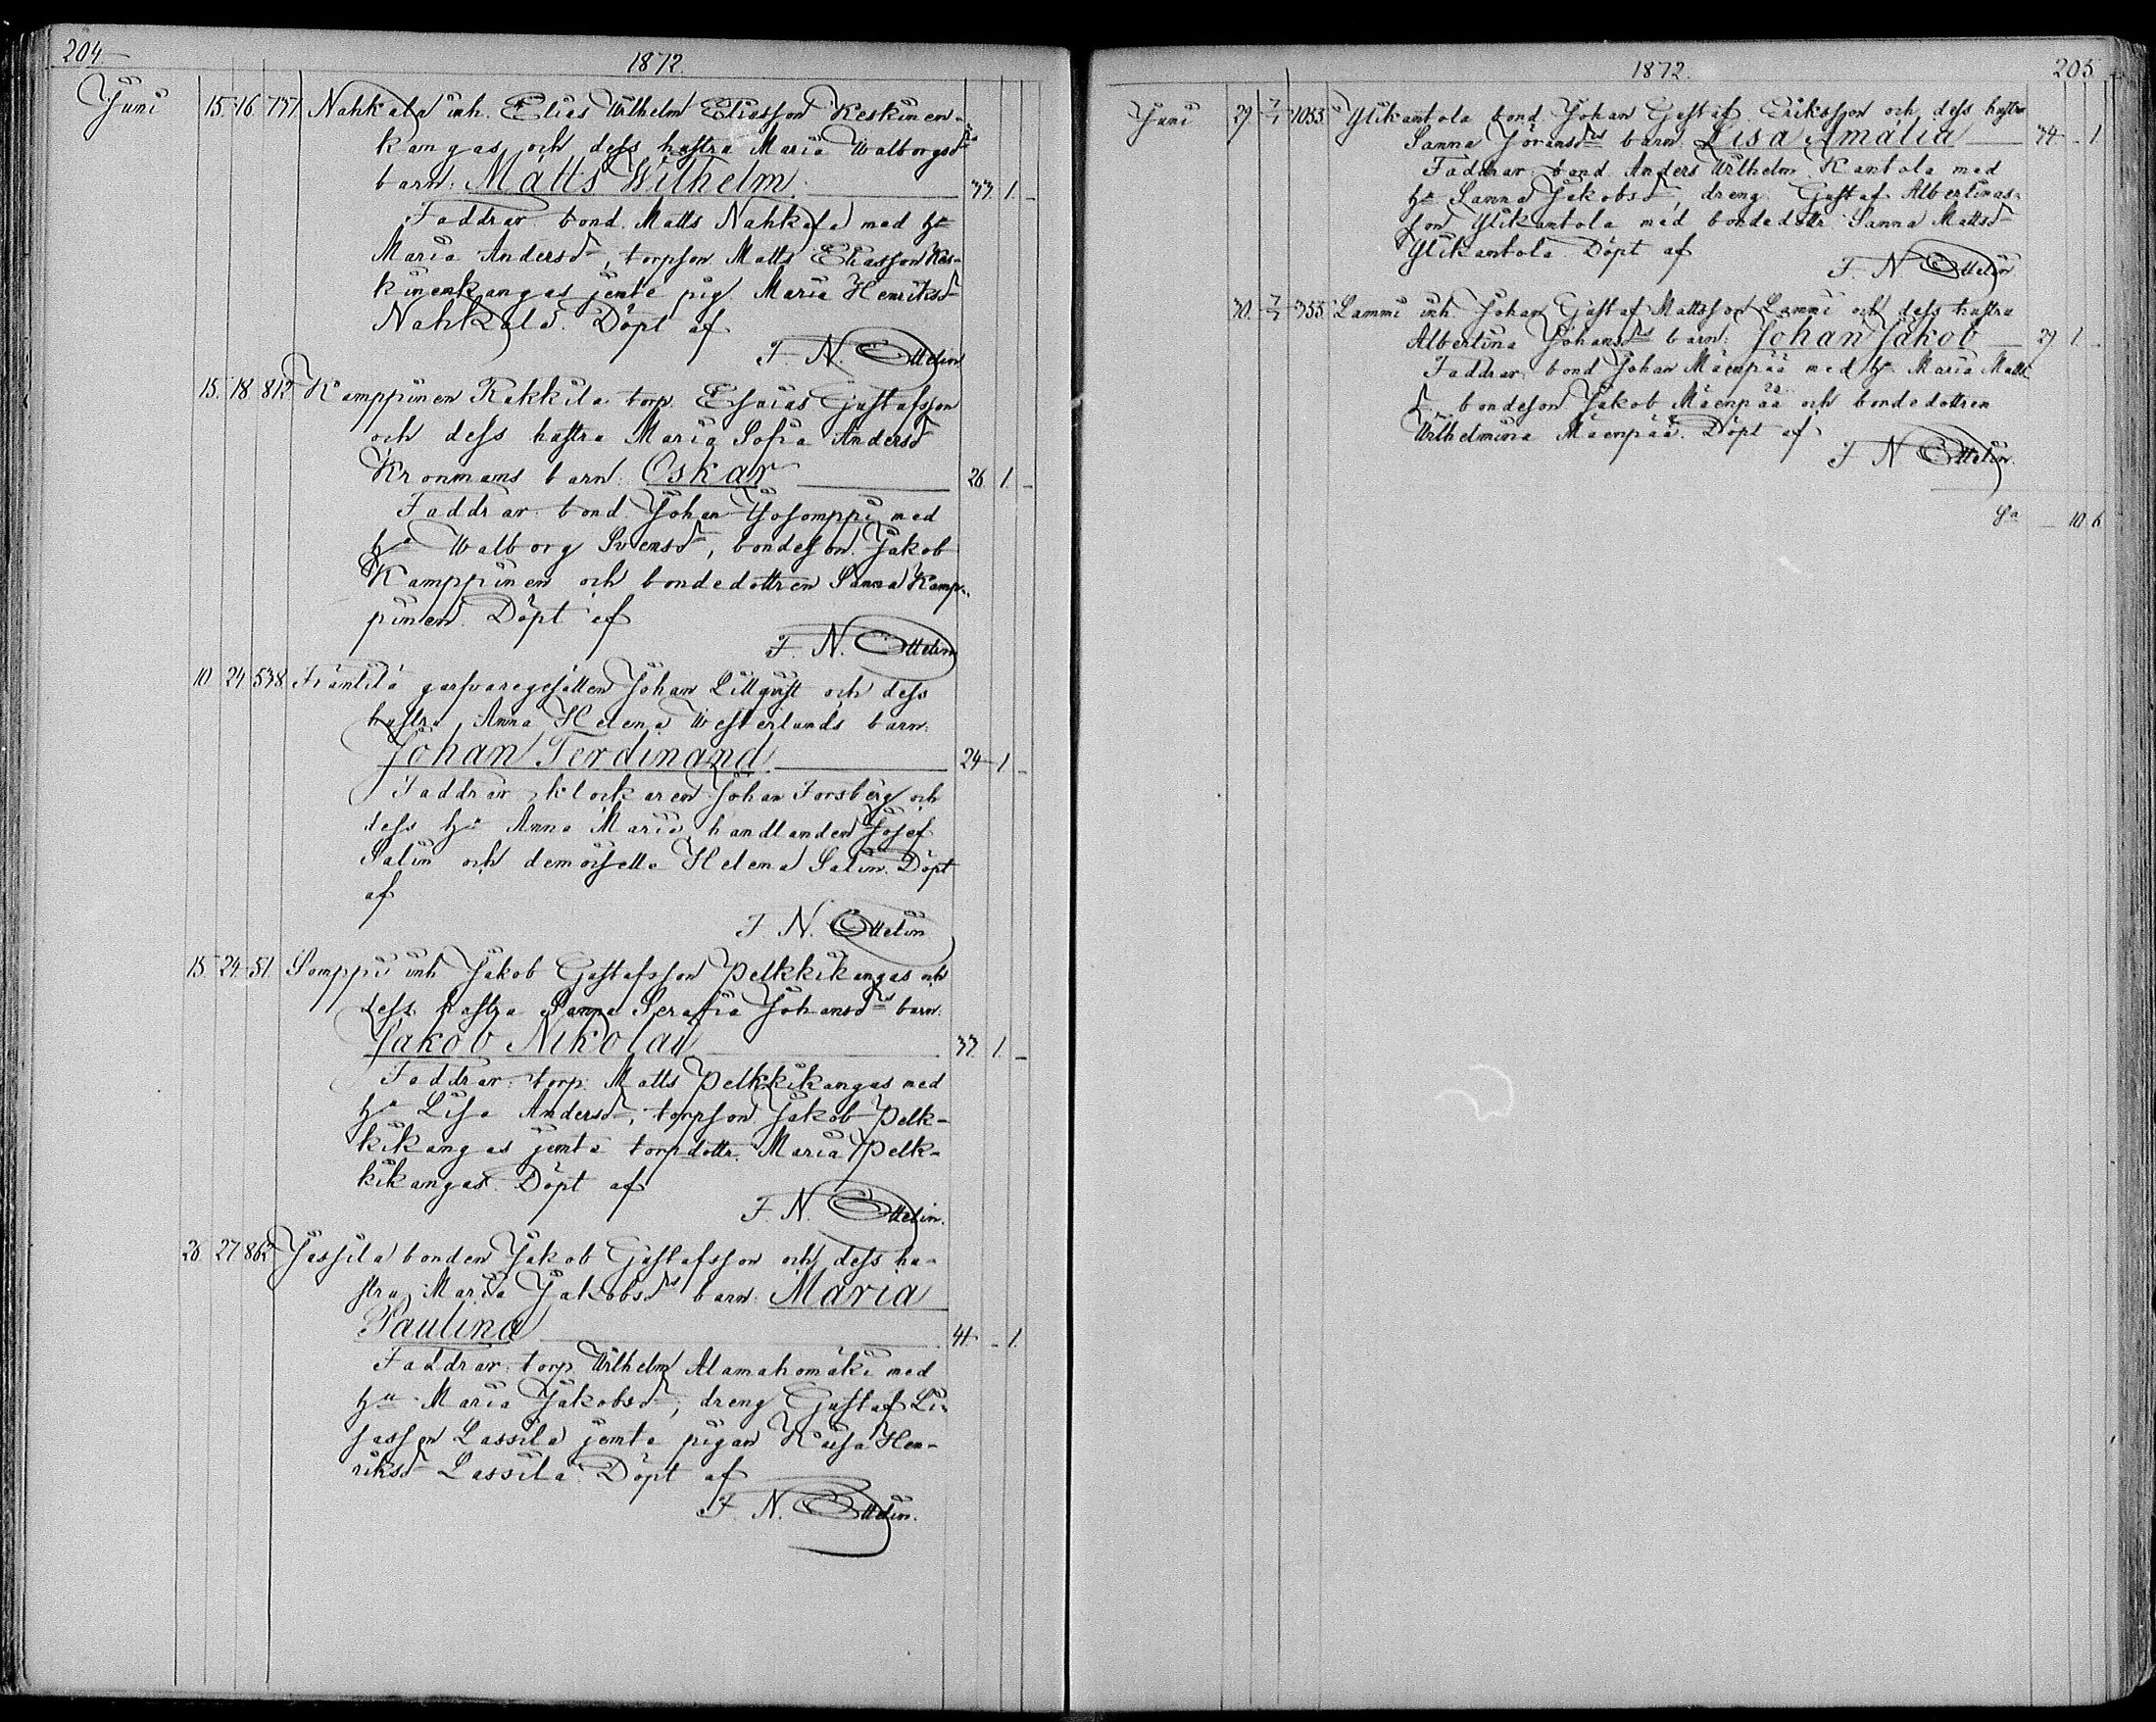 204.
1872.
Juni 15. 16. 737. Nahkala inh. Elias Wilhelm Eliasson Keskinen-
kangas och dess hustru Maria Walborgsdrs
barn: Matts Wilhelm 33. 1. -
Faddrar: bond. Matts Nahkala med hu
Maria Andersdr, torpson Matts Eliasson Kes-
kinenkangas jemte pig. Maria Henriksdr
Nahkala. Döpt af
F. N. Ottelin
15. 18. 812 Kamppinen Rakkila torp. Esaias Gustafsson
och dess hustru Maria Sofia Andersdr
Kronmans barn: Oskar 26. 1. -
Faddrar: bond. Johan Ylisomppi med
hu Walborg Svensdr, bondeson Jakob
Kamppinen och bondedottren Sanna Kamp-
pinen. Döpt af
F. N. Ottelin
10. 24. 538. Frantila garfvaregesällen Johan Lillqvist och dess
hustru Anna Helena Westerlunds barn:
Johan Ferdinand 24 1 -
Faddrar: klockaren Johan Forsberg och
dess hu Anna Maria, handlanden Josef
Salin och demoiselle Helena Salin. Döpt
af
F. N. Ottelin
15. 24. 51. Somppi inh. Jakob Gustafsson Pelkkikangas och
dess hustru Sanna Serafia Johansdrs barn:
Jakob Nikolai 33. 1. -
Faddrar: torp. Matts Pelkkikangas med
hu Lisa Andersdr, torpson Jakob Pelk-
kikangas jemte torpdottr. Maria Pelk-
kikangas. Döpt af
F. N. Ottelin.
26. 27. 862 Jassila bonden Jakob Gustafsson och dess hu-
stru Maria Jakobsdrs barn: Maria
Paulina 41. - 1.
Faddrar: torp. Wilhelm Alamahomäki med
hu Maria Jakobsdr, dreng Gustaf Li-
sasson Lassila jemte pigan Kaisa Hen-
riksdr Lassila. Döpt af
F. N. Ottelin.
1872.
205
Juni 29 7/7 1053. Ylikantola bond. Johan Gustaf Eriksson och dess hustru
Sanna Göransdrs barn: Lisa Amalia 34. - 1
Faddrar: bond. Anders Wilhelm Kantola med
hu Sanna Jakobsdr, dreng Gustaf Albertinas-
son Ylikantola med bondedottr. Sanna Mattsdr
Ylikantola. Döpt af
F. N Ottelin
30. 7/7 355. Lammi inh. Johan Gustaf Mattsson Lammi och dess hustru
Albertina Johansdrs barn: Johan Jakob 29 1. -
Faddrar: bond Johan Mäenpää med hu Maria Matts
dr bondeson Jakob Mäenpää och bondedottren
Wilhelmina Mäenpää. Döpt af
F N Ottelin.
Sa 10. 6